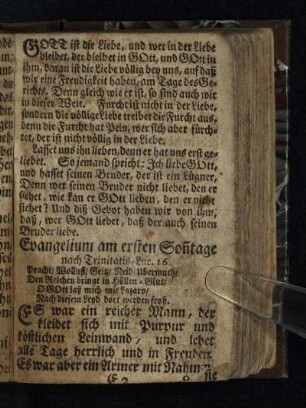 GOTT ist die Liebe, und wer in der Liebe
bleibet, der bleibet in GOtt, und GOtt in
ihm, daran ist die Liebe völlig bey uns, auf daß
wir eine Freudigkeit haben, am Tage des Ge-
richts. Denn gleich wie er ist, so sind auch wir
in dieser Welt. Furcht ist nicht in der Liebe,
sondern die völlige Liebe treibet die Furcht aus,
denn die Furcht hat Pein, wer sich aber fürch-
tet, der ist nicht völlig in der Liebe.
Lasset uns ihn lieben, dann er hat uns erst ge-
liebet. So jemand spricht: Ich liebe GOtt,
und hasset seinen Bruder, der ist ein Lügner.
Denn wer seinen Bruder nicht liebet, den er
siehet, wie kan er GOtt lieben, den er nicht
siehet? Und diß Gebot haben wir von ihm,
daß, wer GOtt liebet, daß der auch seinen
Bruder liebe.
Evangelium am ersten Soñtage
nach Trinitatis, Luc. 16.
Pracht, Wollust, Geitz, Neid, übermuth,
Den Reichen bringt in Höllen-Glut;
O GOtt laß mich wie Lazaro,
Nach diesem Leyd dort werden froh.
ES war ein reicher Mann, der
kleidet sich mit Purpur und
köstlichen Leinwand, und lebet
alle Tage herrlich und in Freuden.
Es war aber ein Armer mit Nahmen